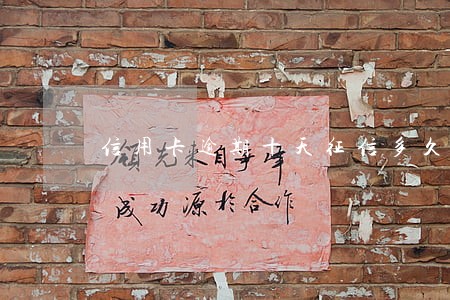 信用卡逾期十天征信多久
领先来自争峰
成功源於合作